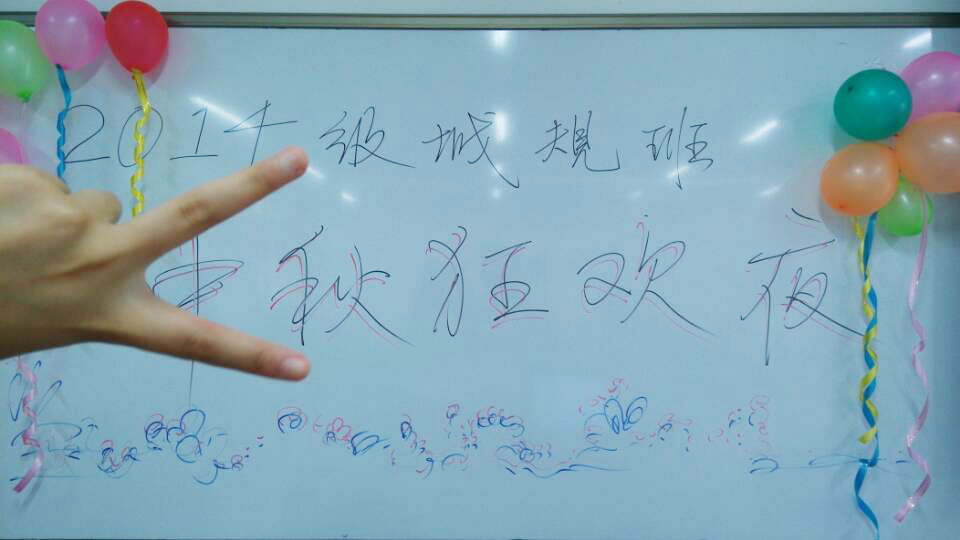 2014级城規班
中秋狂欢夜